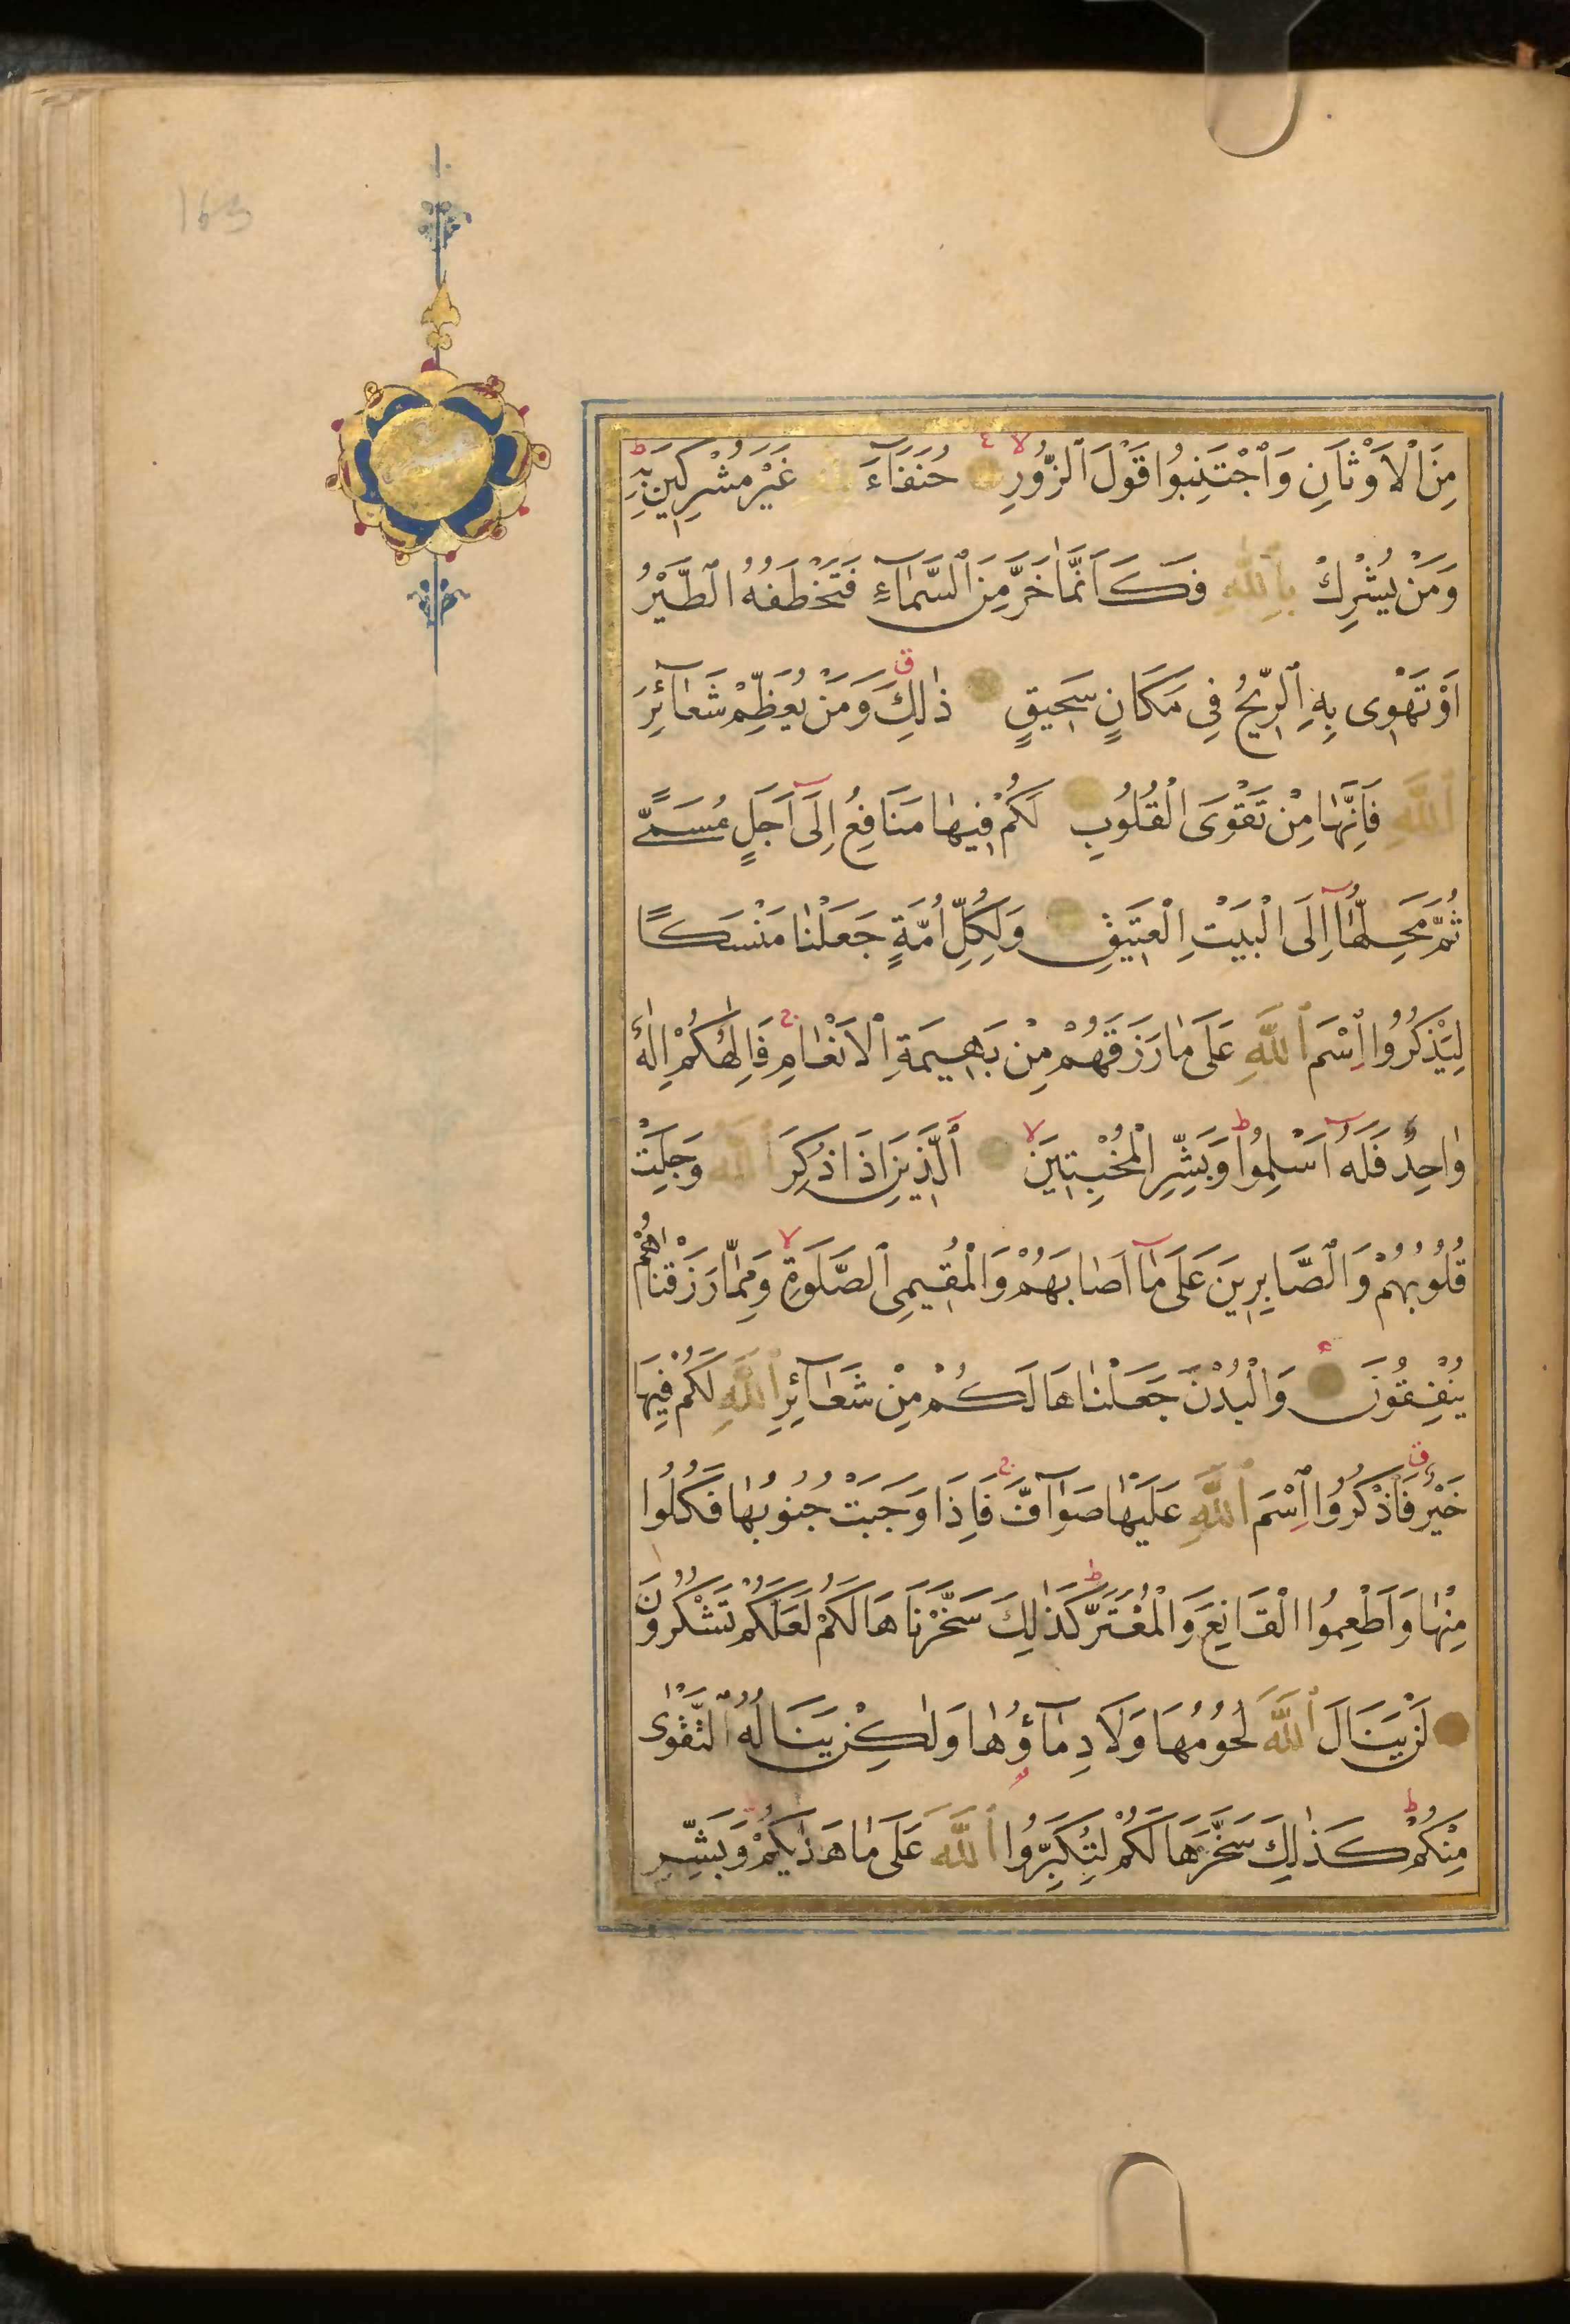 163
مِنَ الْاَوْثَانِ وَاجْتَنِبُوا قَوْلَ الزُّورِ حُنَفَآءَ لِلّٰهِ غَيْرَ مُشْرِكِينَ بِهِ
وَمَنْ يُشْرِكْ بِاللّٰهِ فَكَاَنَّمَا خَرَّ مِنَ السَّمَاءِ فَتَخْطَفُهُ الطَّيْرُ
اَوْ تَهْوِى بِهِ الرِّيحُ فِى مَكَانٍ سَحِيقٍ ذٰلِكَ وَمَنْ يُعَظِّمْ شَعَآئِرَ
اللّٰهِ فَاِنَّهَا مِنْ تَقْوَى الْقُلُوبِ لَكُمْ فِيهَا مَنَافِعُ اِلَىٓ اَجَلٍ مُسَمًّى
ثُمَّ مَحِلُّهَآ اِلَى الْبَيْتِ الْعَتِيقِ وَلِكُلِّ اُمَّةٍ جَعَلْنَا مَنْسَكًا
لِيَذْكُرُوا اسْمَ اللّٰهِ عَلَى مَا رَزَقَهُمْ مِنْ بَهِيمَةِ الْاَنْعَامِ فَاِلٰهُكُمْ اِلٰهٌ
وَاحِدٌ فَلَهُٓ اَسْلِمُوا وَبَشِّرِ الْمُخْبِتِينَ اَلَّذِينَ اِذَا ذُكِرَ اللّٰهُ وَجِلَتْ
قُلُوبُهُمْ وَالصَّابِرِينَ عَلَى مَآ اَصَابَهُمْ وَالْمُقِيمِى الصَّلَوةِ وَمِمَّا رَزَقْنَاهُمْ
يُنْفِقُونَ وَالْبُدْنَ جَعَلْنَاهَا لَكُمْ مِنْ شَعَآئِرِ اللّٰهِ لَكُمْ فِيهَا
خَيْرٌ فَاذْكُرُوا اسْمَ اللّٰهِ عَلَيْهَا صَوَآفَّ فَاِذَا وَجَبَتْ جُنُوبُهَا فَكُلُوا
مِنْهَا وَاَطْعِمُوا الْقَانِعَ وَالْمُعْتَرَّ كَذٰلِكَ سَخَّرْنَاهَا لَكُمْ لَعَلَّكُمْ تَشْكُرُونَ
لَنْ يَنَالَ اللّٰهَ لُحُومُهَا وَلَا دِمَآؤُهَا وَلٰكِنْ يَنَالُهُ التَّقْوٰى
مِنْكُمْ كَذٰلِكَ سَخَّرَهَا لَكُمْ لِتُكَبِّرُوا اللّٰهَ عَلَى مَا هَدٰيكُمْ وَبَشِّرِ